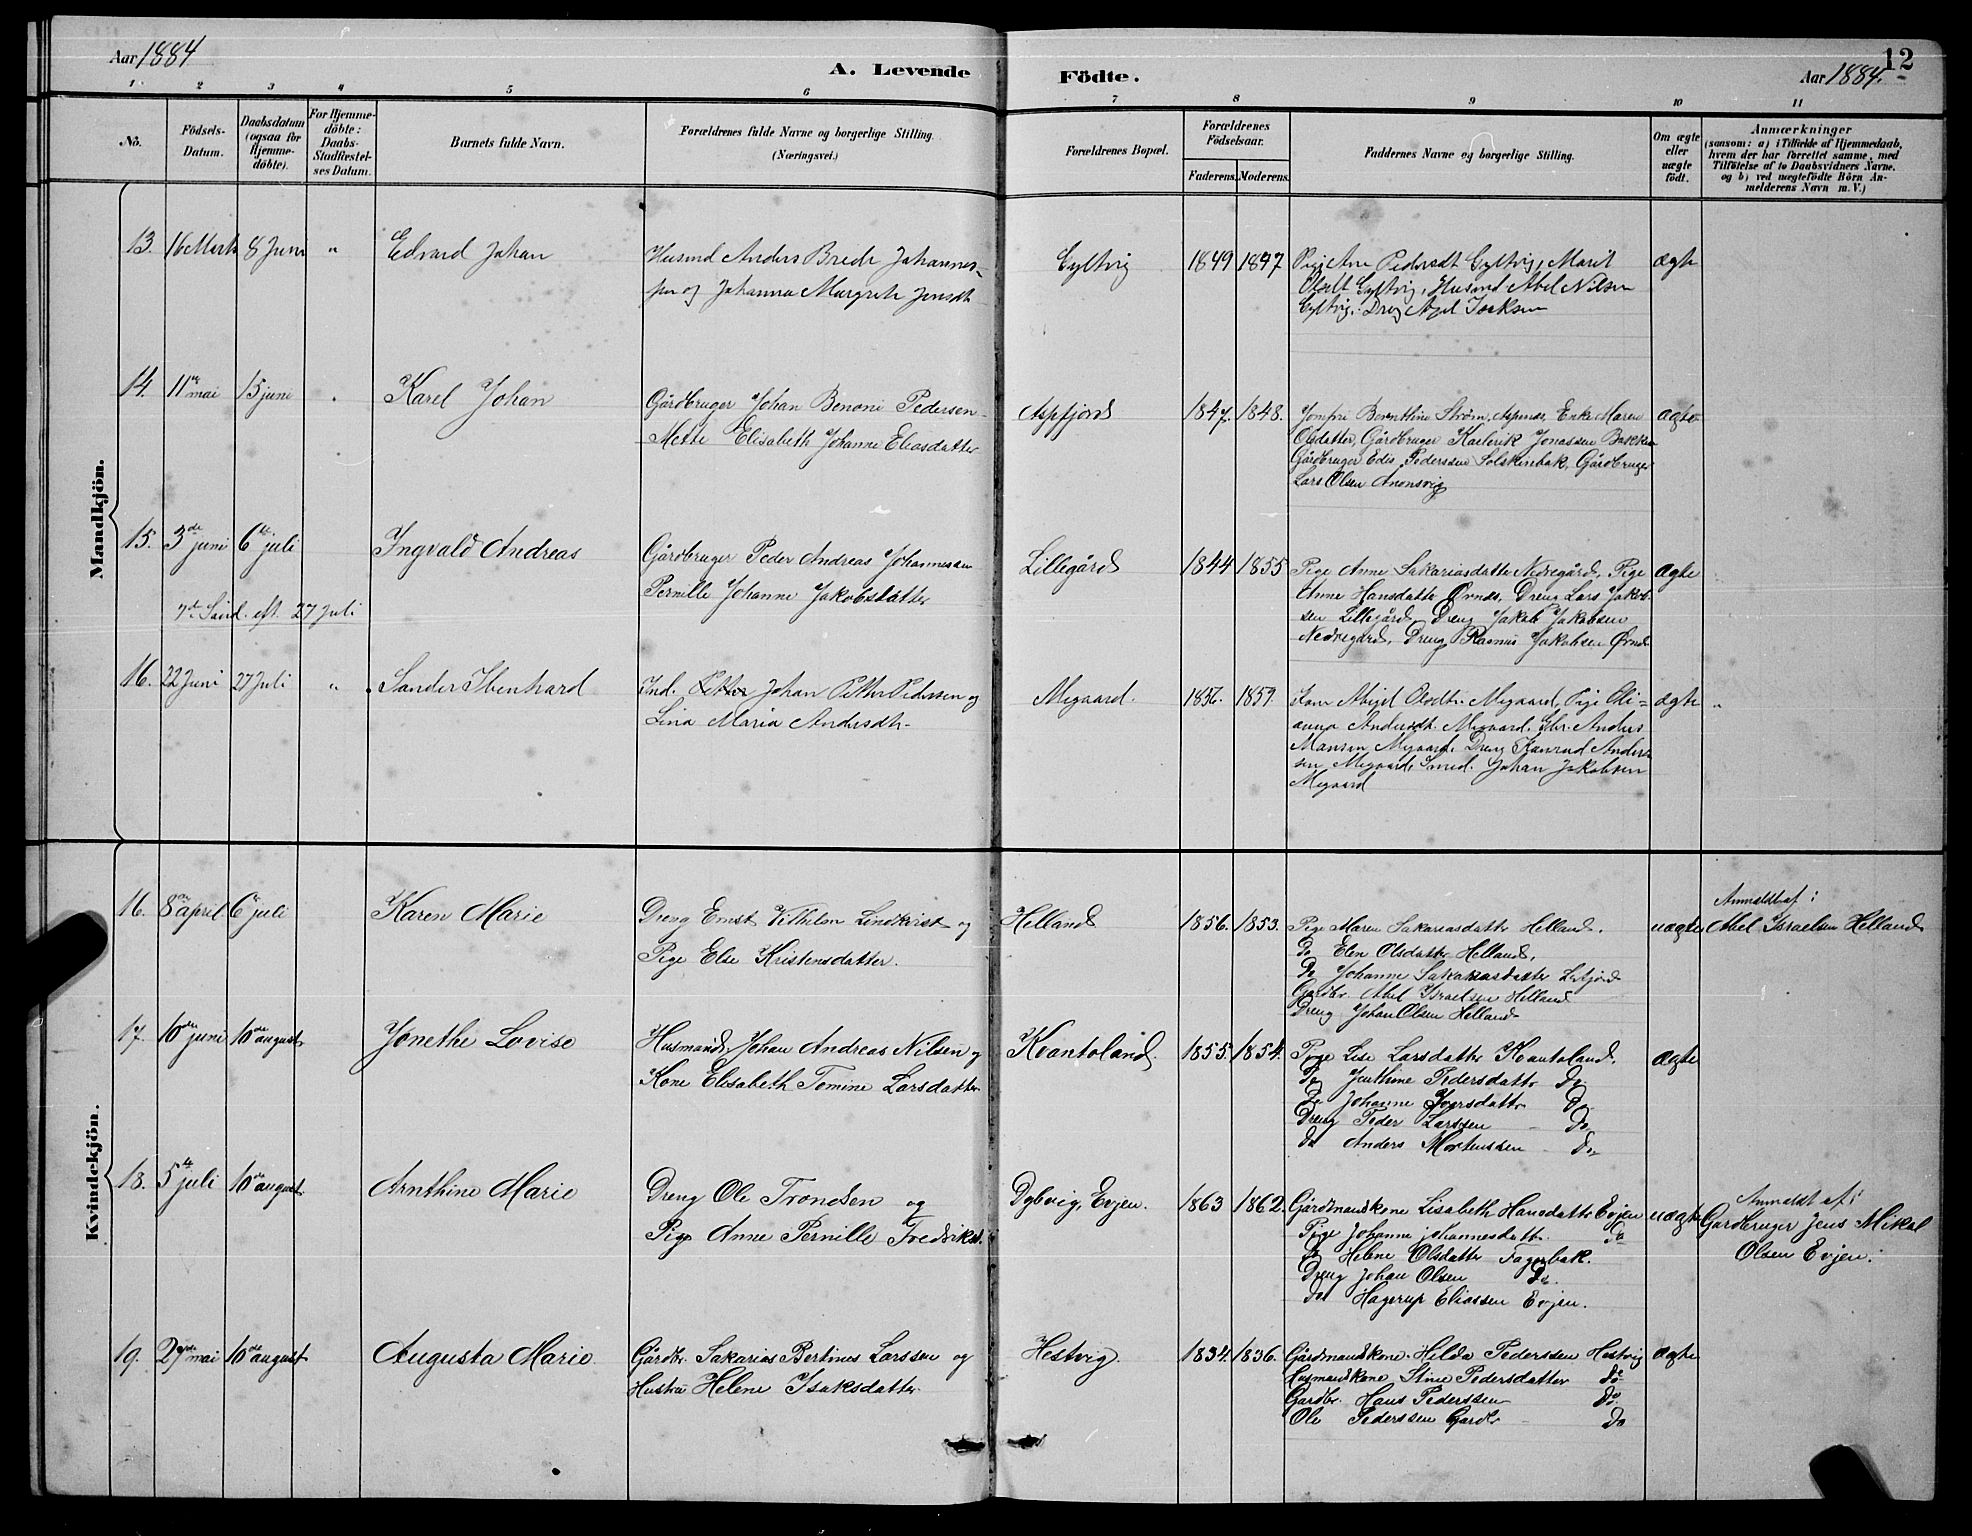 Aar 1884
A. Levende
Födte.
Aar 1884.
12
1 2 3 4 5 6 7 8 9 10 11
No.
Födsels-
Datum.
Daabsdatum
(ogsaa for
Hjemme-
döbte).
For Hjemme-
döbte:
Daabs-
Stadfæstel-
ses Datum.
Barnets fulde Navn.
Forældrenes fulde Navne og borgerlige Stilling.
(Næringsvei.)
Forældrenes Bopæl.
Forældrenes
Födselsaar.
Faderens. Moderens.
Faddernes Navne og borgerlige Stilling.
Om ægte
eller
uægte
födt.
Anmærkninger
(saasom: a) i Tilfælde af Hjemmedaab,
hvem der har forrettet samme, med
Tilföielse af to Daabsvidners Navne.
og b) ved uægtefödte Börn An-
melderens Navn m. V.)
Mandkjön.
13. 16 Marts 8 Juni " Edvard Johan
Husmd Anders Brede Johannes-
sen og Johanna Margrete Jensdt
Gyltvig 1849 1847
Pige Ane Pedersdt Gyltvig, Marit
Olsdt Gyltvig, Husmd Abel Nilsen
Gyltvig, Dreng Axel
ægte
14. 11te mai 15 juni " Karel Johan
Gårdbruger Johan Benoni Pedersen
Mette Elisabeth Johanne Eliasdatter
Aspfjord 1847. 1848.
Jomfru Bernthine Strøm, Aspnes, Enke Maren
Olsdatter, Gårdbruger Jonassen Bakken
Gårdbruger Edis Pederssen Solskinbak, Gårdbruger
Lars Olsen
ægte
15. 3de juni 6te juli Ingvald Andreas
7de Sønd. eft. 27 Juli
Gårdbruger Peder Andreas Johannessen
Pernille Johanne Jakobsdatter
Lillegård 1844 1855
Pige Anne Sakariasdatter Nedregård, Pige
Anne Hansdatter Ørnes, Dreng Lars Jakob-
sen Lillegård, Dreng Jakob Jakobsen
Nedregård, Dreng Rasmus Jakobsen Ørnes
ægte
16. 22 Juni 27 Juli " Sander Ibenhard
Ind. Petter Johan Petter Pedersen og
Lina Maria Andersdtr
Megaard. 1856. 1859
Kone Olsdtr. Megaard, Pige Oli-
anna Andersdt. Megaard, Gbr. Anders
Hansen Megaard, Dreng Konrad Anders-
sen Megaard, Smed. Johan Jakobsen
Megaard
ægte "
Kvindekjön.
16. 8de april 6te juli Karen Marie
Dreng Ernst Vilhelm Lindkvist og
Pige Else Kristensdatter.
Helland 1856. 1853.
Pige Maren Sakariasdatter Helland.
Do Elen Olsdatter Helland.
Do Johanne Sakariasdatter
Gårdbr. Abel Israelsen Helland
Dreng Johan Olsen Helland
uægte
Anmeldt af:
Abel Israelsen Helland
17. 10de juni 10de august Jonethe Lovise
Husmand Johan Andreas Nilsen og
Kone Elisabeth Tomine Larsdatter
Kvantoland. 1855. 1854.
Pige Lise Larsdatter Kvantoland.
Do Jenthine Pedersdatter Do
Do Johanne Ivarsdatter Do
Dreng Peder Larssen Do
do Anders Mortenssen Do
ægte
18. 5te juli 10de august Arnthine Marie
Dreng Ole Trondsen og
Pige Anne Pernille Fredriksd.
Dybvig, Evjen. 1863 1862.
Gårdmandskone Lisabeth Hansdatter Evjen
Pige Johanne Johannesdatter Do
Do Helene Olsdatter Fagerbak.
Dreng Johan Olsen Do.
do Hagerup Eliassen Evjen.
uægte
Anmeldt af:
Gårdbruger Jens Mikal
Olsen Evjen.
19. 27de mai 10de august Augusta Marie.
Gårdbr. Sakarias Bertinus Larssen og
Hustru Helene Isaksdatter
Hestvig. 1834. 1836.
Gårdmandskone. Hilda Pederssen Hestvig
Husmandskone Stine Pedersdatter do
Gårdbr. Hans Pederssen Do
Ole Pederssen Gårdbr Do
ægte